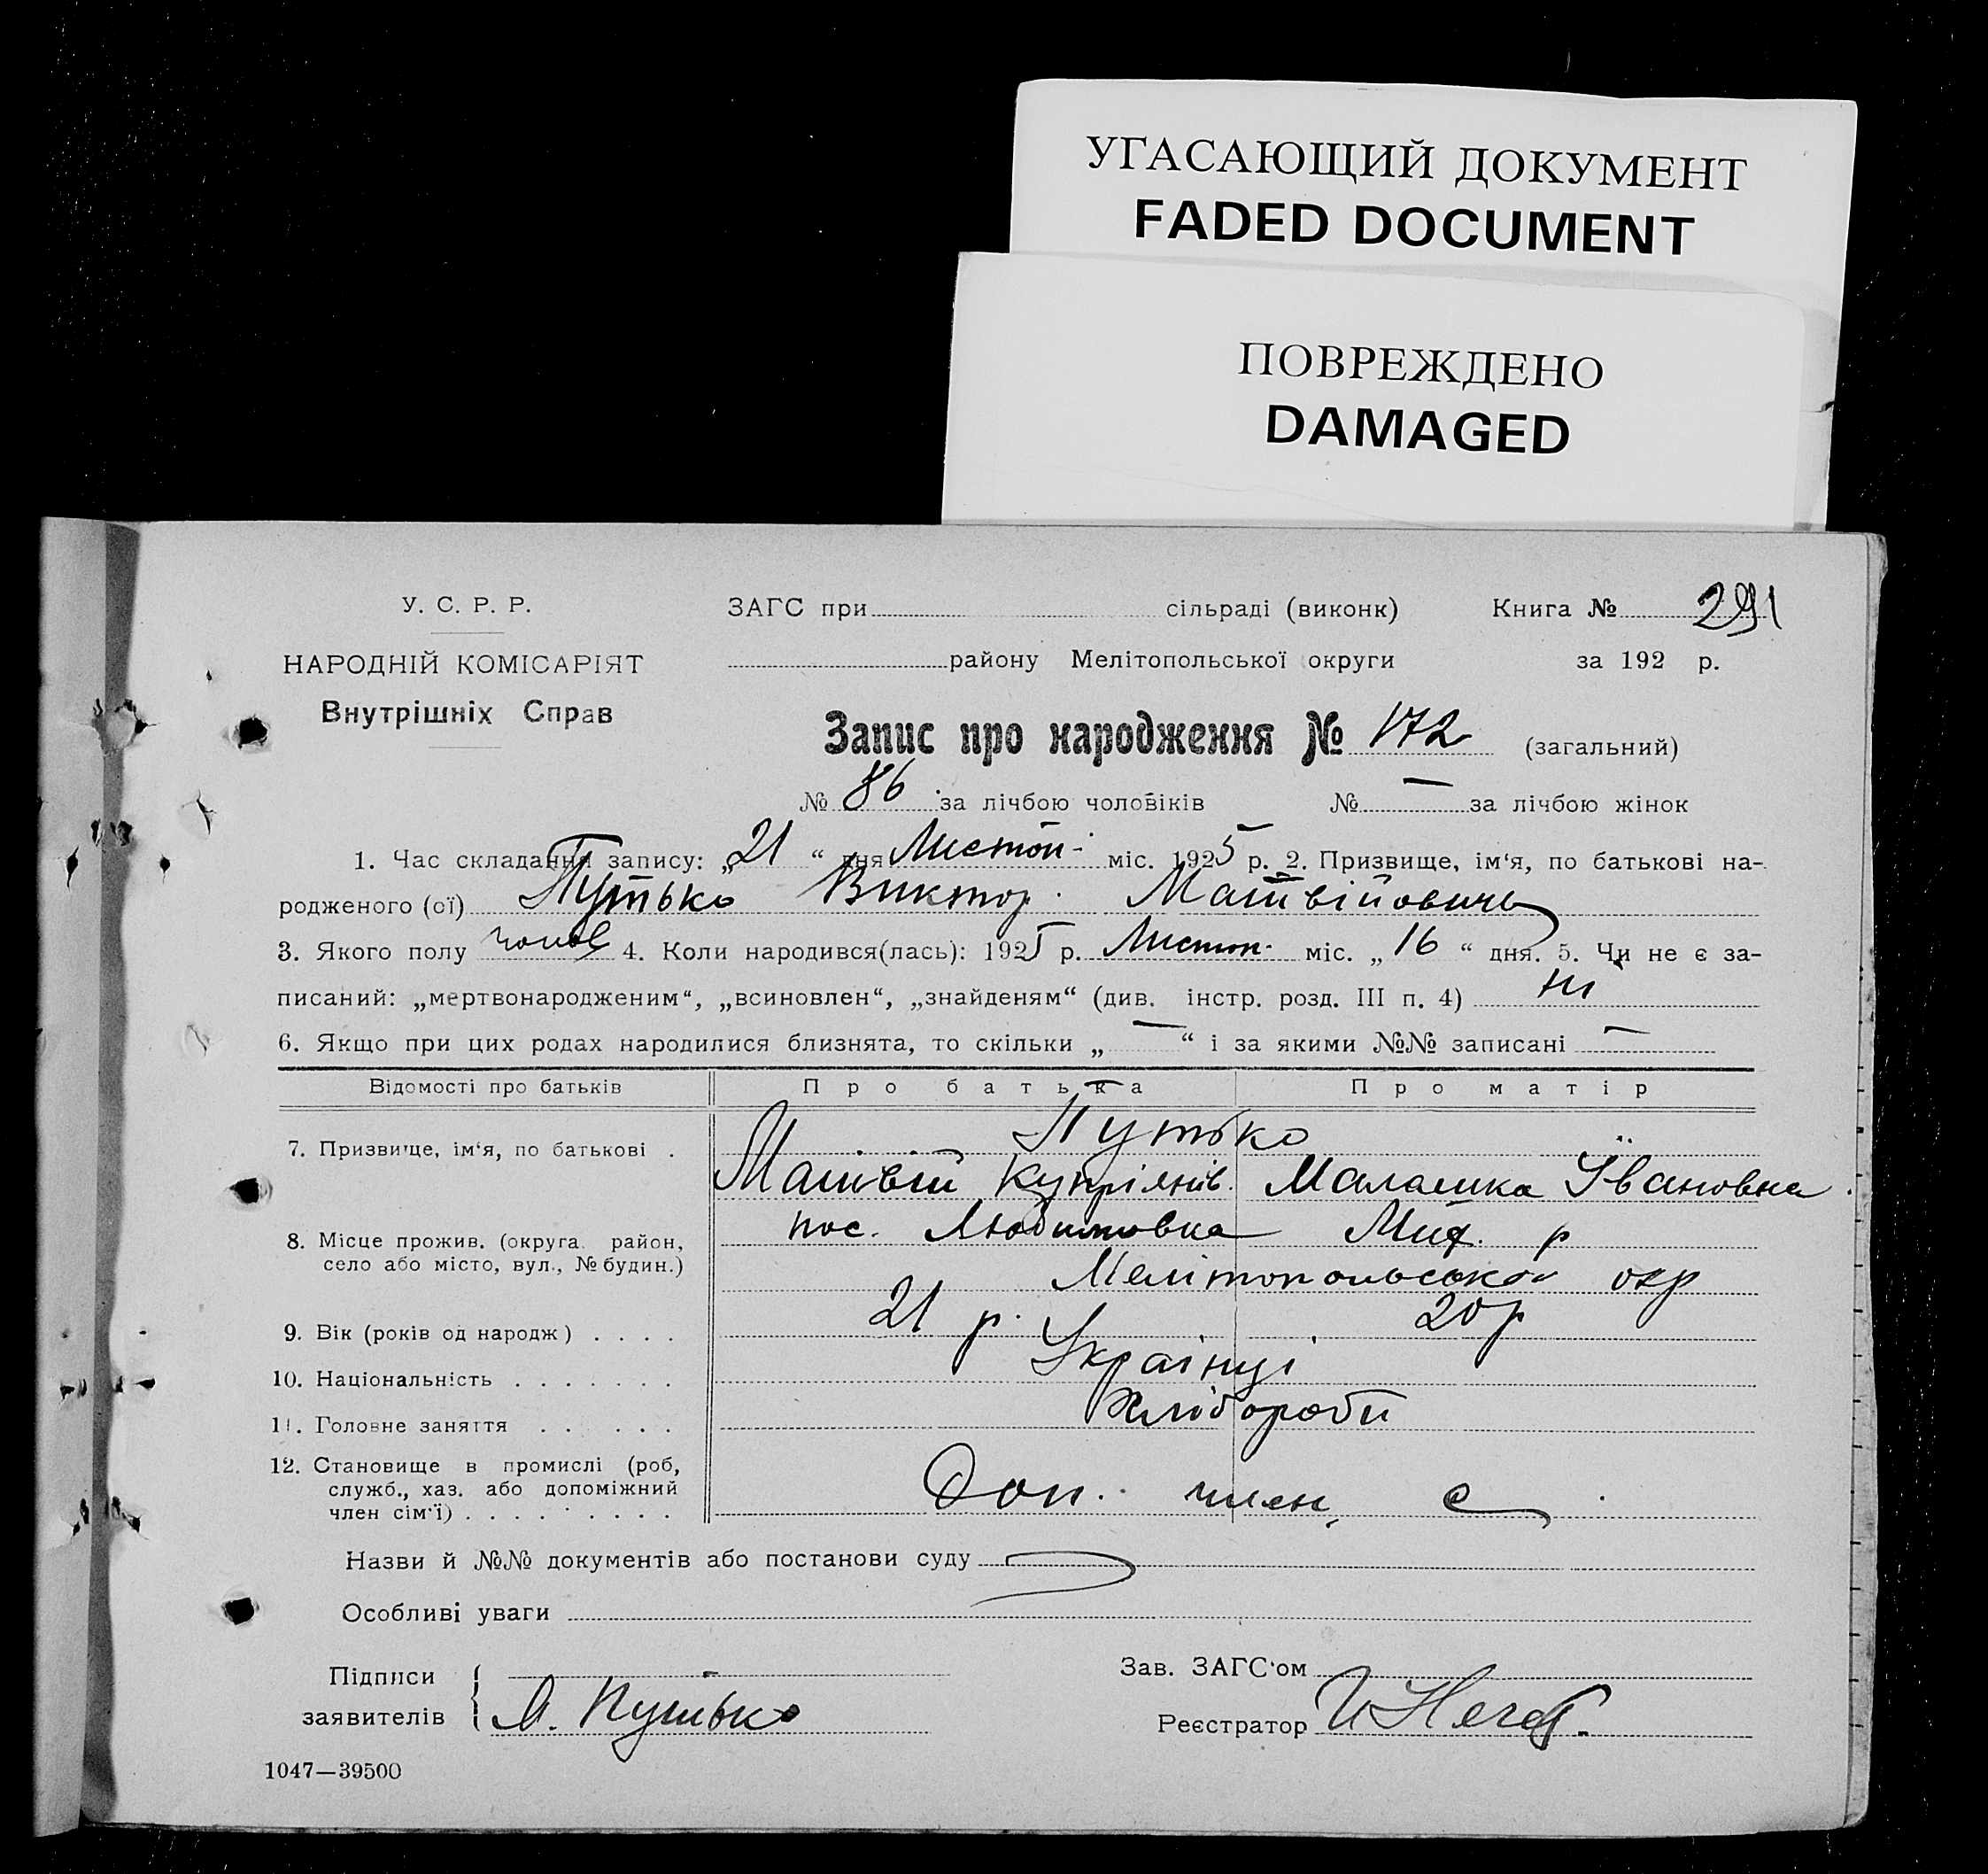 УГАСАЮЩИЙ ДОКУМЕНТ
FADED DOCUMENT
ПОВРЕЖДЕНО
DAMAGED
У. С. Р. Р.
НАРОДНІЙ КОМІСАРІЯТ
Внутрішніх Справ
ЗАГС при сільраді (виконк) Книга № 291
району Мелітопольської округи за 192 р.
Запис про народження № 172 (загальний)
№ 86 за лічбою чоловіків № — за лічбою жінок
1. Час складання запису: „21“ дня Листоп. міс. 1925 р. 2. Призвище, ім‘я, по батькові на-
родженого (ої) Путько Виктор Матвійовичь
3. Якого полу чолов 4. Коли народився(лась): 1925 р. Листоп. міс. „16“ дня. 5. Чи не є за-
писаний: „мертвонародженим“, „всиновлен“, „знайденям“ (див. інстр. розд. III п. 4) ні
6. Якщо при цих родах народилися близнята, то скільки „—“ і за якими №№ записані —
Відомості про батьків Про батька Про матір
7. Призвище, ім‘я, по батькові . Путько
Матвій Купріянів. Малашка Івановна
8. Місце прожив. (округа район,
село або місто, вул., № будин.)
пос. Любимовка р
Мелітопольської окр
9. Вік (років од народж) . . . . 21 р. 20 р
10. Національність . . . . . . . Українці
11. Головне заняття . . . . . Хлібороби
12. Становище в промислі (роб,
служб., хаз. або допоміжний
член сім‘ї) . . . . . . . . Доп. член. с
Назви й №№ документів або постанови суду
Особливі уваги
Підписи
заявителів М. Путько
Зав. ЗАГС‘ом
Реєстратор
1047—39500